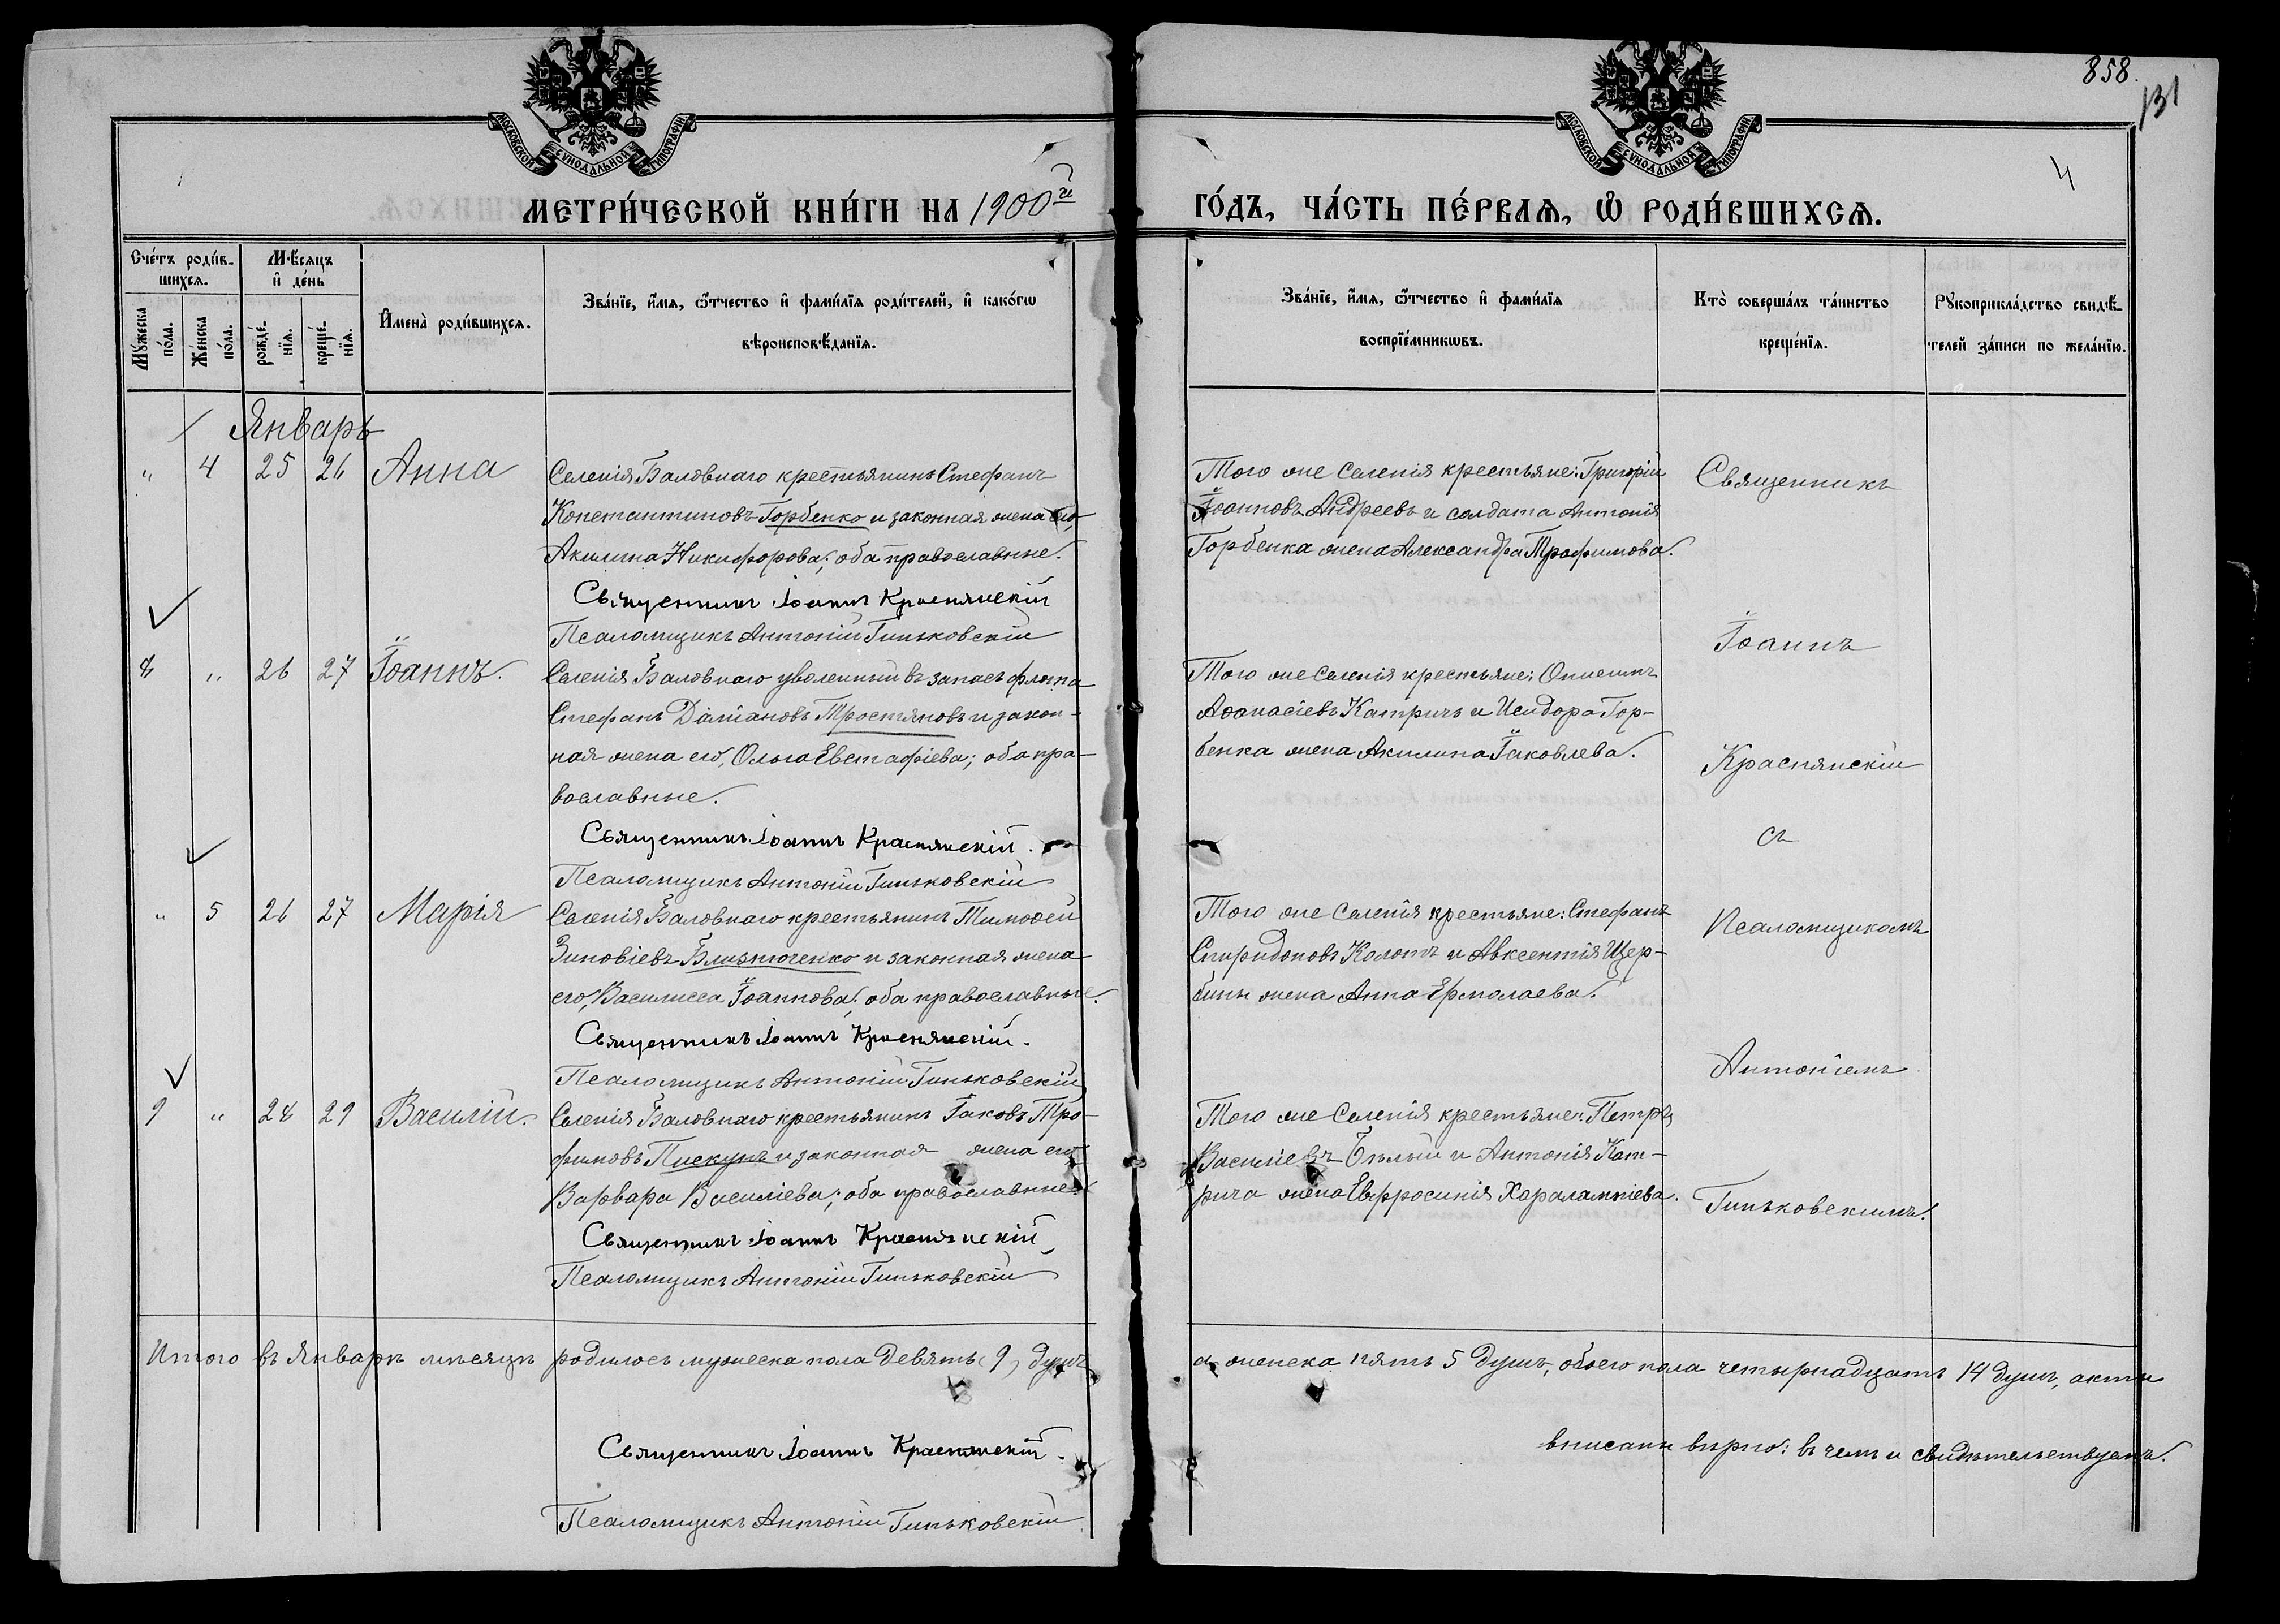 858.
131
4
МОСКОВСКОЙ СѴНОДАЛЬНОЙ ТИПОГРАФІИ
МОСКОВСКОЙ СѴНОДАЛЬНОЙ ТИПОГРАФІИ
МЕТРИ́ЧЕСКОЙ КНИ́ГИ НА 1900й
ГО́ДЪ, ЧА́СТЬ ПЕ́РВАѦ, Ѽ РОДИ́ВШИХСѦ.
Сче́тъ роди́в-
шихсѧ.
Мѣ́сяцъ
и҆ де́нь
Мꙋ́жеска
по́ла.
Же́нска
по́ла.
рожде́-
нїѧ.
креще́-
нїѧ.
И҆мена̀ роди́вшихсѧ.
Зва́нїе, и҆́мѧ, ѻ҆́тчество и҆ фами́лїѧ роди́телей, и҆ како́гѡ
вѣроисповѣ́данїѧ.
Зва́нїе, и҆́мѧ, ѻ҆́тчество и҆ фами́лїѧ
воспрїе́мникѡвъ.
Кто̀ соверша́лъ та́инство
креще́нїѧ.
Рꙋкоприкла́дство свидѣ́-
телей за́писи по жела́нїю.
Январь
„ 4 25 26 Анна
Селенія Баловнаго крестьянинъ Стефанъ
Константиновъ Горбенко и законная жена его,
Акилина Никифорова; оба православные.
Священникъ Іоаннъ Краснянскій
Псаломщикъ Антоній Гиньковскій
Того же селенія крестьяне: Григорій
Іоанновъ Андреевъ и солдата Антонія
Горбенка жена Александра Трофимова.
8 „ 26 27 Іоаннъ.
Селенія Баловнаго уволенный въ запасъ флота
Стефанъ Даміановъ Тростяновъ и закон-
ная жена его, Ольга Евстафіева; оба пра-
вославные.
Священникъ Іоаннъ Краснянскій.
Псаломщикъ Антоній Гиньковскій
Того же селенія крестьяне: Онисимъ
Аѳанасіевъ Катричъ и Исидора Гор-
бенка жена Акилина Іаковлева.
„ 5 26 27 Марія
Селенія Баловнаго крестьянинъ Тимоѳей
Зиновіевъ Близнюченко и законная жена
его, Василисса Іоаннова; оба православные.
Священникъ Іоаннъ Краснянскій.
Псаломщикъ Антоній Гиньковскій
Того же селенія крестьяне: Стефанъ
Спиридоновъ Колотъ и Авксентія Щер-
бины жена Анна Ермолаева.
9 „ 28 29 Василій.
Селенія Баловнаго крестьянинъ Іаковъ Тро-
фимовъ Пискунъ и законная жена его
Варвара Василіева; оба православные.
Священникъ Іоаннъ Краснянскій
Псаломщикъ Антоній Гиньковскій
Того же селенія крестьяне: Петръ
Василіевъ Бѣлый и Антонія Кат-
рича жена Евфросинія Харалампіева.
Священникъ
Іоаннъ
Краснянскій
съ
Псаломщикомъ
Антоніемъ
Гиньковскимъ.
Итого въ Январѣ мѣсяцѣ родилось мужеска пола девять (9) душъ,
а женска пять 5 душъ, обоего пола четырнадцать 14 душъ, акты
вписаны вѣрно: въ чемъ и свидѣтельствуемъ.
Священникъ Іоаннъ Краснянскій.
Псаломщикъ Антоній Гиньковскій